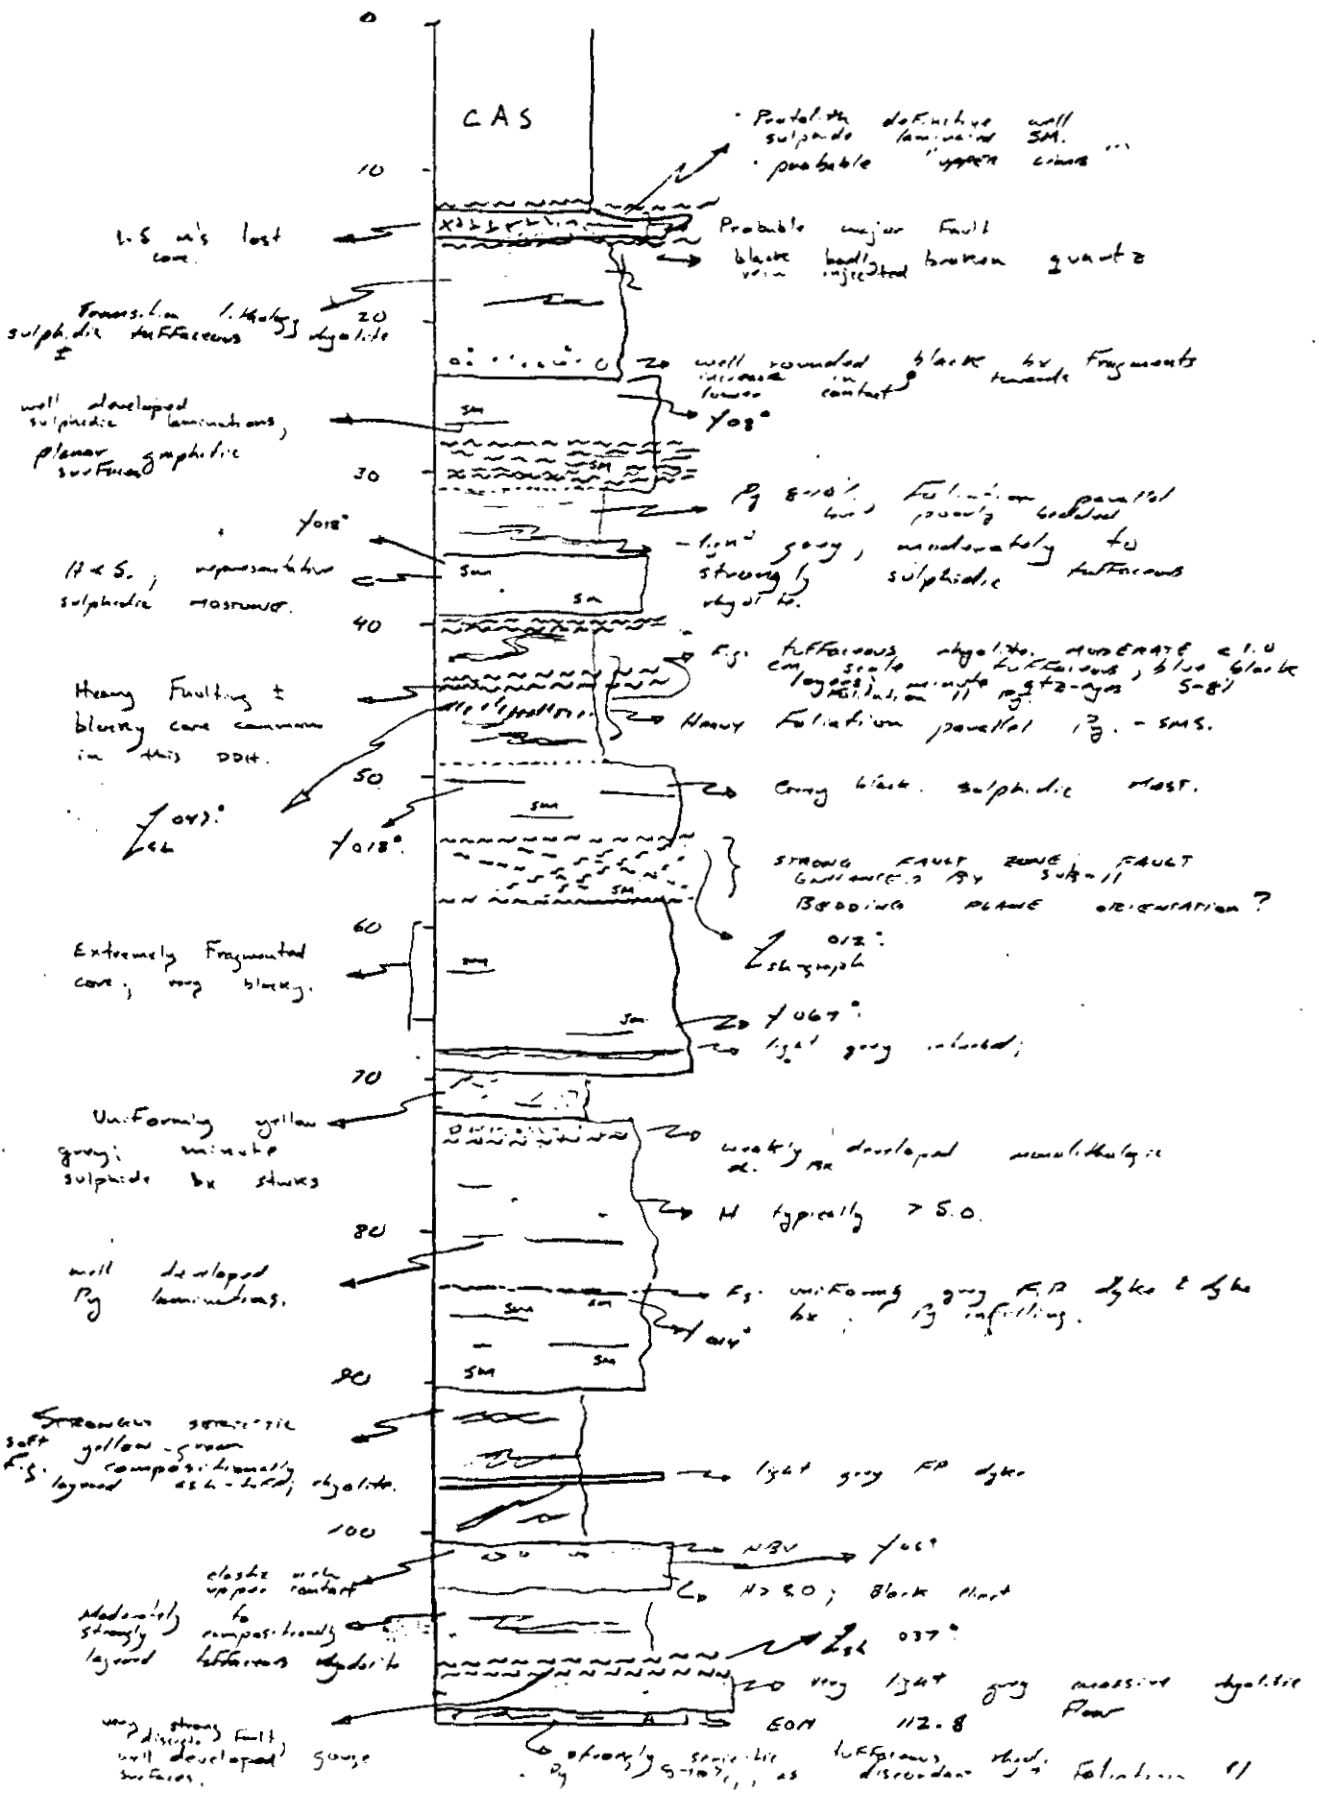 0
CAS
· Protolith definitive well
sulphide laminated SM.
· probable "upper
10
1.5 m's lost
core.
Probable major Fault
black badly broken quartz
vein injected
Transition lithology
sulphidic tuffaceous rhyolite
±
20
well rounded black bx Fragments
increase in towards
lower contact
well developed
sulphidic laminations,
planar graphidic
surfaces
SM
03°
SM
30
Py 8-10% Foliation parallel
poorly bedded
018°
- light grey, moderately to
strongly sulphidic tuffaceous
rhyolite.
H < 5. ; representative
sulphidic MOSTUNE.
SM
SM
40
F.g. tuffaceous rhyolite. MODERATE < 1.0
cm scale tuffaceous, blue black
layers; minute qtz-eyes 5-8%
Foliation // py.
Heavy Faulting ±
blocky core common
in this DDH.
Heavy Foliation parallel py. - SMS.
50
Grey black. sulphidic MOST.
SM
047°
018°
STRONG FAULT ZONE; FAULT
BY SUB-//
BEDDING PLANE ORIENTATION?
SM
60
012°
sh-graph
Extremely Fragmented
core; very blocky.
SM
SM
067°
light grey
70
Uniforming yellow
grey; minute
sulphide bx
weakly developed monolithologic
Bx
H typically > 5.0.
80
well developed
Py laminations.
F.g. uniformly grey F.P. dyke ± dyke
bx ; Py infilling.
SM
SM
014°
SM
SM
90
STRONGLY SERICITIC
soft yellow-green
F.g. compositionally
layered ash-tuff; rhyolite.
light grey FP dyke
100
NBV
clastic rich
upper contact
H > 5.0 ; Black Chert
Moderately to
strongly compositionally
layered tuffaceous rhyodacite
sh 037°
very light grey massive rhyolitic
Flow
very strong
discrete Fault,
well developed gouge
surfaces.
EOH 112.8
strongly sericitic tuffaceous rhyo.
Py 5-10%, as discordant Foliation //